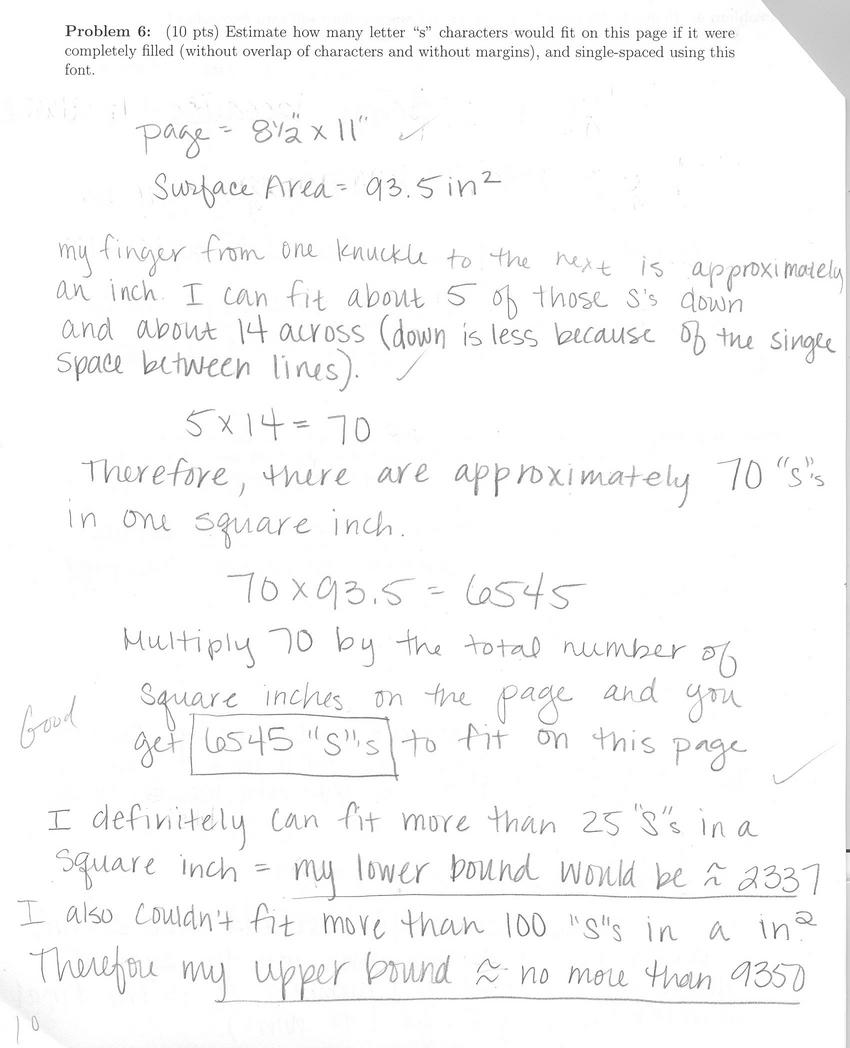 Problem 6: (10 pts) Estimate how many letter “s” characters would fit on this page if it were
completely filled (without overlap of characters and without margins), and single-spaced using this
font.
page = 8½" x 11" ✓
Surface Area = 93.5 in²
my finger from one knuckle to the next is approximately
an inch. I can fit about 5 of those s's down
and about 14 across (down is less because of the single
space between lines). ✓
5 x 14 = 70
Therefore, there are approximately 70 "s"s
in one square inch.
70 x 93.5 = 6545
Multiply 70 by the total number of
square inches on the page and you
Good
get 6545 "s"'s to fit on this page ✓
I definitely can fit more than 25 "s"s in a
square inch = my lower bound would be ≈ 2337
I also couldn't fit more than 100 "s"s in a in².
Therefore my upper bound ≈ no more than 9350
10